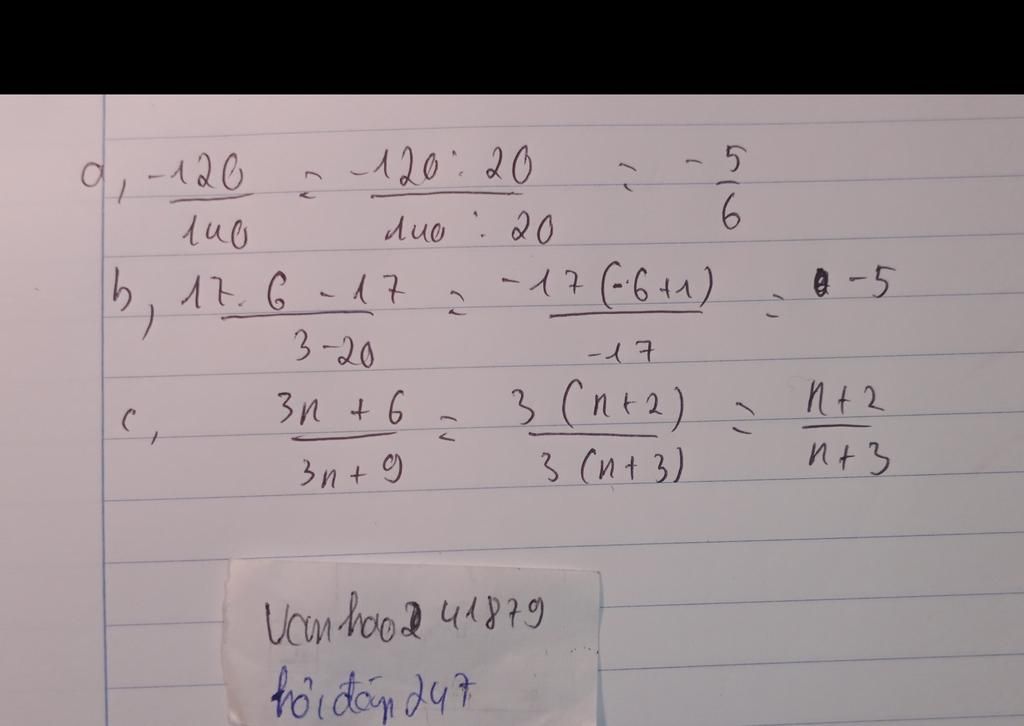 a, -120/140 = -120 : 20/140 : 20 = -5/6
b, 17. 6 - 17/3 - 20 = -17 (-6+1)/-17 = -5
c, 3n + 6/3n + 9 = 3 (n+2)/3 (n+3) = n+2/n+3
Vanhao241879
hỏi đáp 247